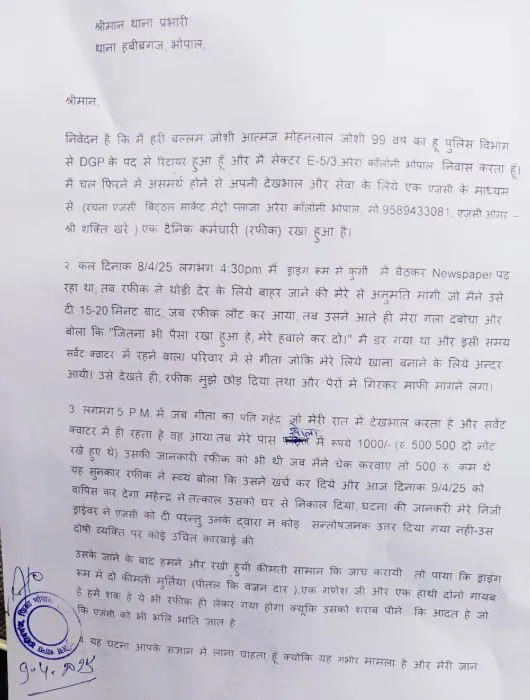 श्रीमान थाना प्रभारी
थाना हबीबगंज, भोपाल,
श्रीमान,
निवेदन है कि मै हरी बल्लम जोशी आत्मज मोहनलाल जोशी 99 वर्ष का हू पुलिस विभाग
से DGP के पद से रिटायर हुआ हूँ और मै सेक्टर E-5/3 अरेरा कॉलोनी भोपाल निवास करता हूँ।
मैं चल फिरने में असमर्थ होने से अपनी देखभाल और सेवा के लिये एक एजसी के माध्यम
से (रचना एजसी बिट्ठल मार्केट मेट्रो प्लाजा अरेरा कॉलोनी भोपाल मो.9589433081, एजसी ओनर –
श्री शक्ति खरे ) एक दैनिक कर्मचारी (रफीक) रखा हुआ है।
२. कल दिनाक 8/4/25 लगभग 4:30pm मैं ड्राइग रूम मे कुर्शी में बेठकर Newspaper पढ़
रहा था, तब रफीक ने थोड़ी देर के लिये बाहर जाने की मेरे से अनुमति मांगी, जो मैंने उसे
दी 15-20 मिनट बाद, जब रफीक लौट कर आया, तब उसने आते ही मेरा गला दबोचा और
बोला कि "जितना भी पैसा रखा हुआ है, मेरे हवाले कर दो।" मैं डर गया था और इसी समय
सर्वट क्वाटर में रहने वाला परिवार में से गीता जोकि मेरे लिये खाना बनाने के लिये अन्दर
आयी। उसे देखते ही, रफीक मुझे छोड़ दिया तथा और पैरों में गिरकर माफी मागने लगा।
3 लगभग 5 P.M. में जब गीता का पति महेद्र जो मेरी रात में देखभाल करता है और सर्वट
क्वाटर में ही रहता है वह आया तब मेरे पास में रूपये 1000/- (रु. 500,500 दो नोट
रखे हुए थे) उसकी जानकारी रफीक को भी थी जब मैंने चेक करवाए तो 500 रु कम थे
यह सुनकार रफीक ने स्व्य बोला कि उसने खर्च कर दिये और आज दिनाक 9/4/25 को
वापिस कर देगा महेन्द्र ने तत्काल उसको घर से निकाल दिया, घटना की जानकरी मेरे निजी
ड्राईवर ने एजसी को दी परन्तु उनके दवारा न कोइ सन्तोषजनक उत्तर दिया गया नही-उस
दोषी व्यक्ति पर कोई उचित कारवाई की
उसके जाने के बाद हमने और रखी हुयी कीमती सामान कि जाच करायी तो पाया कि ड्राइग
रूम में दो कीमती मुर्तिया (पीतल कि वजन दार ),एक गणेश जी और एक हाथी दोनों गायब
है हमें शक है ये भी रफीक ही लेकर गया होगा क्यूकि उसको शराब पीने कि आदत है जो
कि एजसी को भी भलि भाति ज्ञात है
यह घटना आपके सज्ञान मे लाना चाहता हूँ क्योंकि यह गभीर मामला है और मेरी जान
9-4-2025